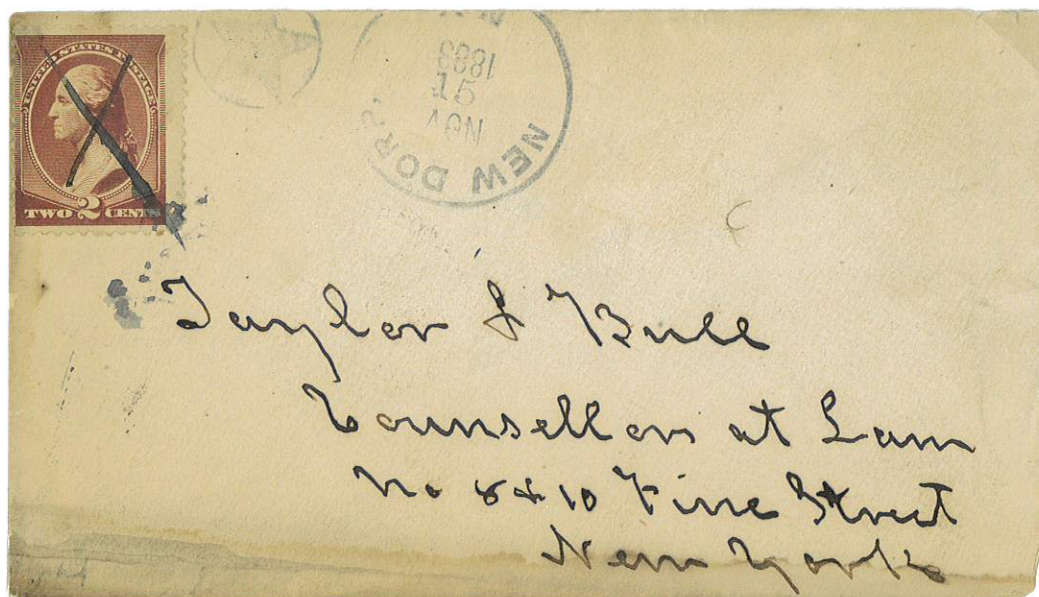 UNITED STATES POSTAGE
TWO 2 CENTS
NEW DORP
NOV
15
1883
Taylor & Bull
Counsellors at Law
No 8 & 10 Pine Street
New York